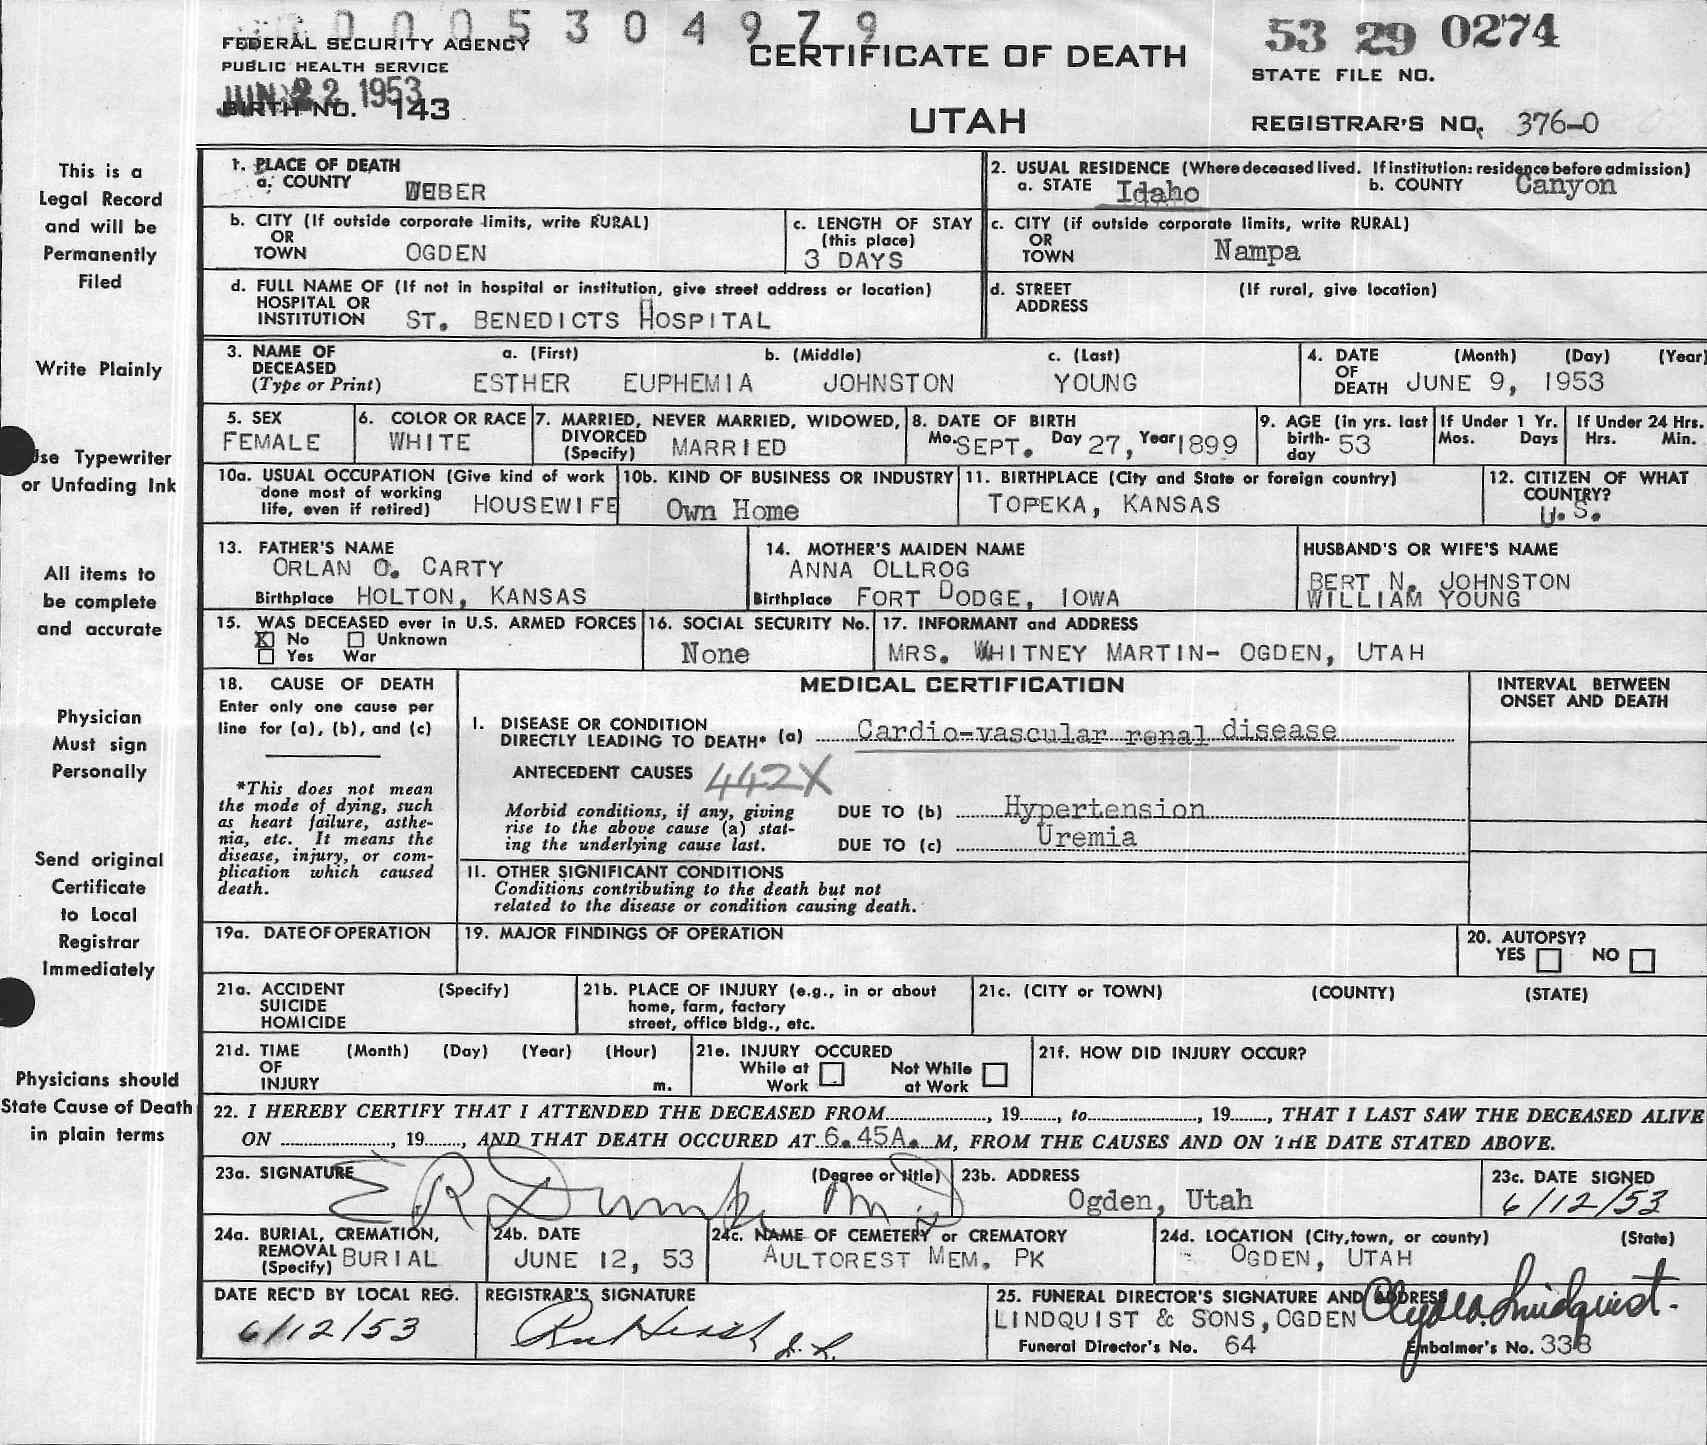 0005304979
FEDERAL SECURITY AGENCY
PUBLIC HEALTH SERVICE
JUN 22 1953
BIRTH NO. 143
CERTIFICATE OF DEATH
UTAH
53 29 0274
STATE FILE NO.
REGISTRAR'S NO. 376-0
This is a
Legal Record
and will be
Permanently
Filed
Write Plainly
Use Typewriter
or Unfading Ink
All items to
be complete
and accurate
Physician
Must sign
Personally
Send original
Certificate
to Local
Registrar
Immediately
Physicians should
State Cause of Death
in plain terms
1. PLACE OF DEATH
a. COUNTY WEBER
2. USUAL RESIDENCE (Where deceased lived. If institution: residence before admission)
a. STATE Idaho b. COUNTY Canyon
b. CITY (If outside corporate limits, write RURAL)
OR
TOWN OGDEN
c. LENGTH OF STAY
(this place)
3 DAYS
c. CITY (if outside corporate limits, write RURAL)
OR
TOWN Nampa
d. FULL NAME OF (If not in hospital or institution, give street address or location)
HOSPITAL OR
INSTITUTION ST. BENEDICTS HOSPITAL
d. STREET (If rural, give location)
ADDRESS
3. NAME OF a. (First) b. (Middle) c. (Last)
DECEASED
(Type or Print) ESTHER EUPHEMIA JOHNSTON YOUNG
4. DATE (Month) (Day) (Year)
OF
DEATH JUNE 9, 1953
5. SEX
FEMALE
6. COLOR OR RACE
WHITE
7. MARRIED, NEVER MARRIED, WIDOWED,
DIVORCED
(Specify) MARRIED
8. DATE OF BIRTH
Mo. SEPT. Day 27, Year 1899
9. AGE (in yrs. last
birth- 53
day
If Under 1 Yr.
Mos. Days
If Under 24 Hrs.
Hrs. Min.
10a. USUAL OCCUPATION (Give kind of work
done most of working
life, even if retired) HOUSEWIFE
10b. KIND OF BUSINESS OR INDUSTRY
Own Home
11. BIRTHPLACE (City and State or foreign country)
TOPEKA, KANSAS
12. CITIZEN OF WHAT
COUNTRY?
U.S.
13. FATHER'S NAME
ORLAN O. CARTY
Birthplace HOLTON, KANSAS
14. MOTHER'S MAIDEN NAME
ANNA OLLROG
Birthplace FORT DODGE, IOWA
HUSBAND'S OR WIFE'S NAME
BERT N. JOHNSTON
WILLIAM YOUNG
15. WAS DECEASED ever in U.S. ARMED FORCES
X No Unknown
Yes War
16. SOCIAL SECURITY No.
None
17. INFORMANT and ADDRESS
MRS. WHITNEY MARTIN- OGDEN, UTAH
18. CAUSE OF DEATH
Enter only one cause per
line for (a), (b), and (c)
*This does not mean
the mode of dying, such
as heart failure, asthe-
nia, etc. It means the
disease, injury, or com-
plication which caused
death.
MEDICAL CERTIFICATION
I. DISEASE OR CONDITION
DIRECTLY LEADING TO DEATH* (a) Cardio-vascular renal disease
ANTECEDENT CAUSES 442X
Morbid conditions, if any, giving
rise to the above cause (a) stat-
ing the underlying cause last.
DUE TO (b) Hypertension
DUE TO (c) Uremia
II. OTHER SIGNIFICANT CONDITIONS
Conditions contributing to the death but not
related to the disease or condition causing death.
INTERVAL BETWEEN
ONSET AND DEATH
19a. DATE OF OPERATION
19. MAJOR FINDINGS OF OPERATION
20. AUTOPSY?
YES NO
21a. ACCIDENT (Specify)
SUICIDE
HOMICIDE
21b. PLACE OF INJURY (e.g., in or about
home, farm, factory
street, office bldg., etc.
21c. (CITY or TOWN) (COUNTY) (STATE)
21d. TIME (Month) (Day) (Year) (Hour)
OF
INJURY m.
21e. INJURY OCCURED
While at Work
Not While at Work
21f. HOW DID INJURY OCCUR?
22. I HEREBY CERTIFY THAT I ATTENDED THE DECEASED FROM ........, 19...., to ........, 19...., THAT I LAST SAW THE DECEASED ALIVE
ON ........, 19...., AND THAT DEATH OCCURED AT 6.45A. M, FROM THE CAUSES AND ON THE DATE STATED ABOVE.
23a. SIGNATURE (Degree or title)
E R Dumke M.D
23b. ADDRESS
Ogden, Utah
23c. DATE SIGNED
6/12/53
24a. BURIAL, CREMATION,
REMOVAL
(Specify) BURIAL
24b. DATE
JUNE 12, 53
24c. NAME OF CEMETERY or CREMATORY
AULTOREST MEM. PK
24d. LOCATION (City, town, or county) (State)
OGDEN, UTAH
DATE REC'D BY LOCAL REG.
6/12/53
REGISTRAR'S SIGNATURE
25. FUNERAL DIRECTOR'S SIGNATURE AND ADDRESS
LINDQUIST & SONS, OGDEN Clyde Lindquist.
Funeral Director's No. 64 Embalmer's No. 338